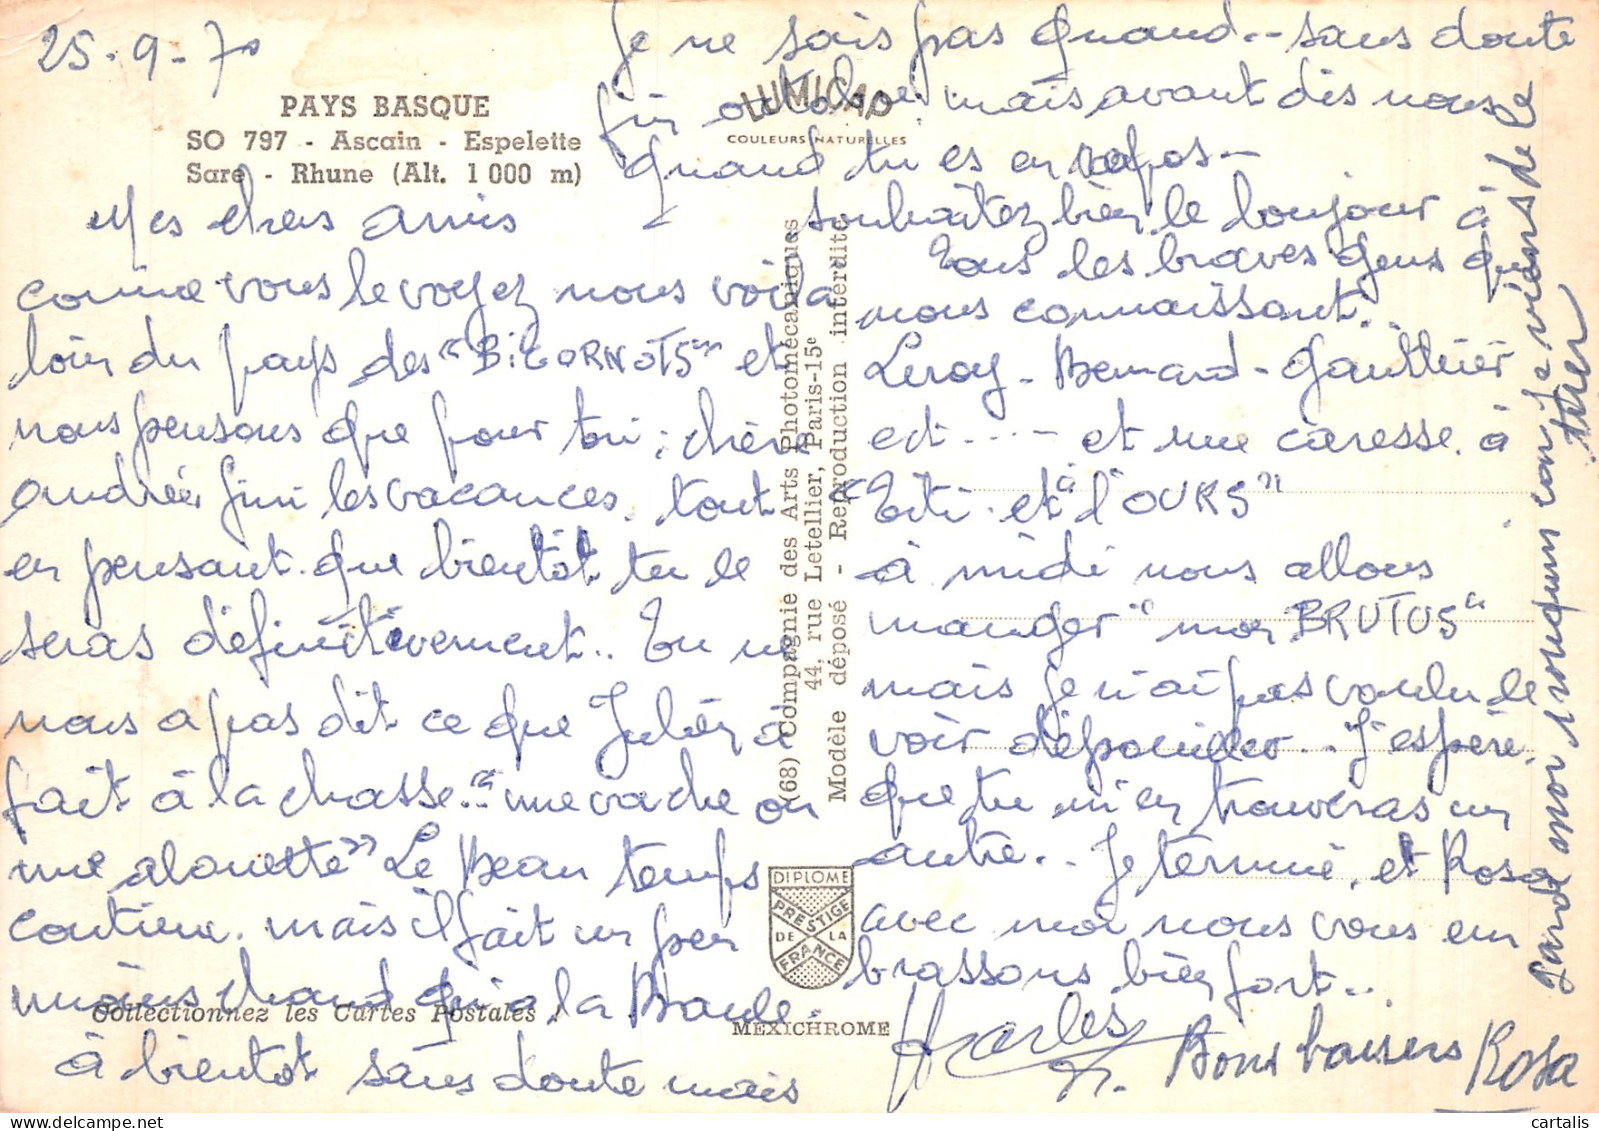 25-9-70
PAYS BASQUE
SO 797 - Ascain - Espelette
Sare - Rhune (Alt. 1 000 m)
Mes chers amis
comme vous le voyez nous voila
loin du pays des "BIGORNOTS" et
nous pensons que pour toi, chère
Andrée fini les vacances, tout
en pensant que bientôt tu le
seras définitivement.. Tu ne
nous a pas dit ce que Julien à
fait à la chasse.. "une vache ou
une alouette" Le Beau temps
continue. mais il fait un peu
moins chaud qu'a la Baule.
à bientot sans doute mais
Collectionnez les Cartes Postales
Je ne sais pas quand.. sans doute
fin octobre. mais avant dis nous
quand tu es en repos -
souhaitez bien le bonjour à
Tous les braves gens qui
nous connaissent.
Leroy - Bernard - Gauthier
ect... - et une caresse à
"Titi et à l'OURS"
à midi nous allons
manger "mon BRUTUS"
mais je n'ai pas voulu le
voir dépouiller.. J'espère
que tu m'en trouveras un
autre.. Je termine, et Rosa
avec moi nous vous em
brassons bien fort..
Charles
Bons baisers Rosa
LUMICAP
COULEURS NATURELLES
(68) Compagnie des Arts Photomécaniques
44, rue Letellier, Paris-15e
Modèle déposé - Reproduction interdite
DIPLOME
PRESTIGE
DE LA
FRANCE
MEXICHROME
je viens de le
tuer
cartalis